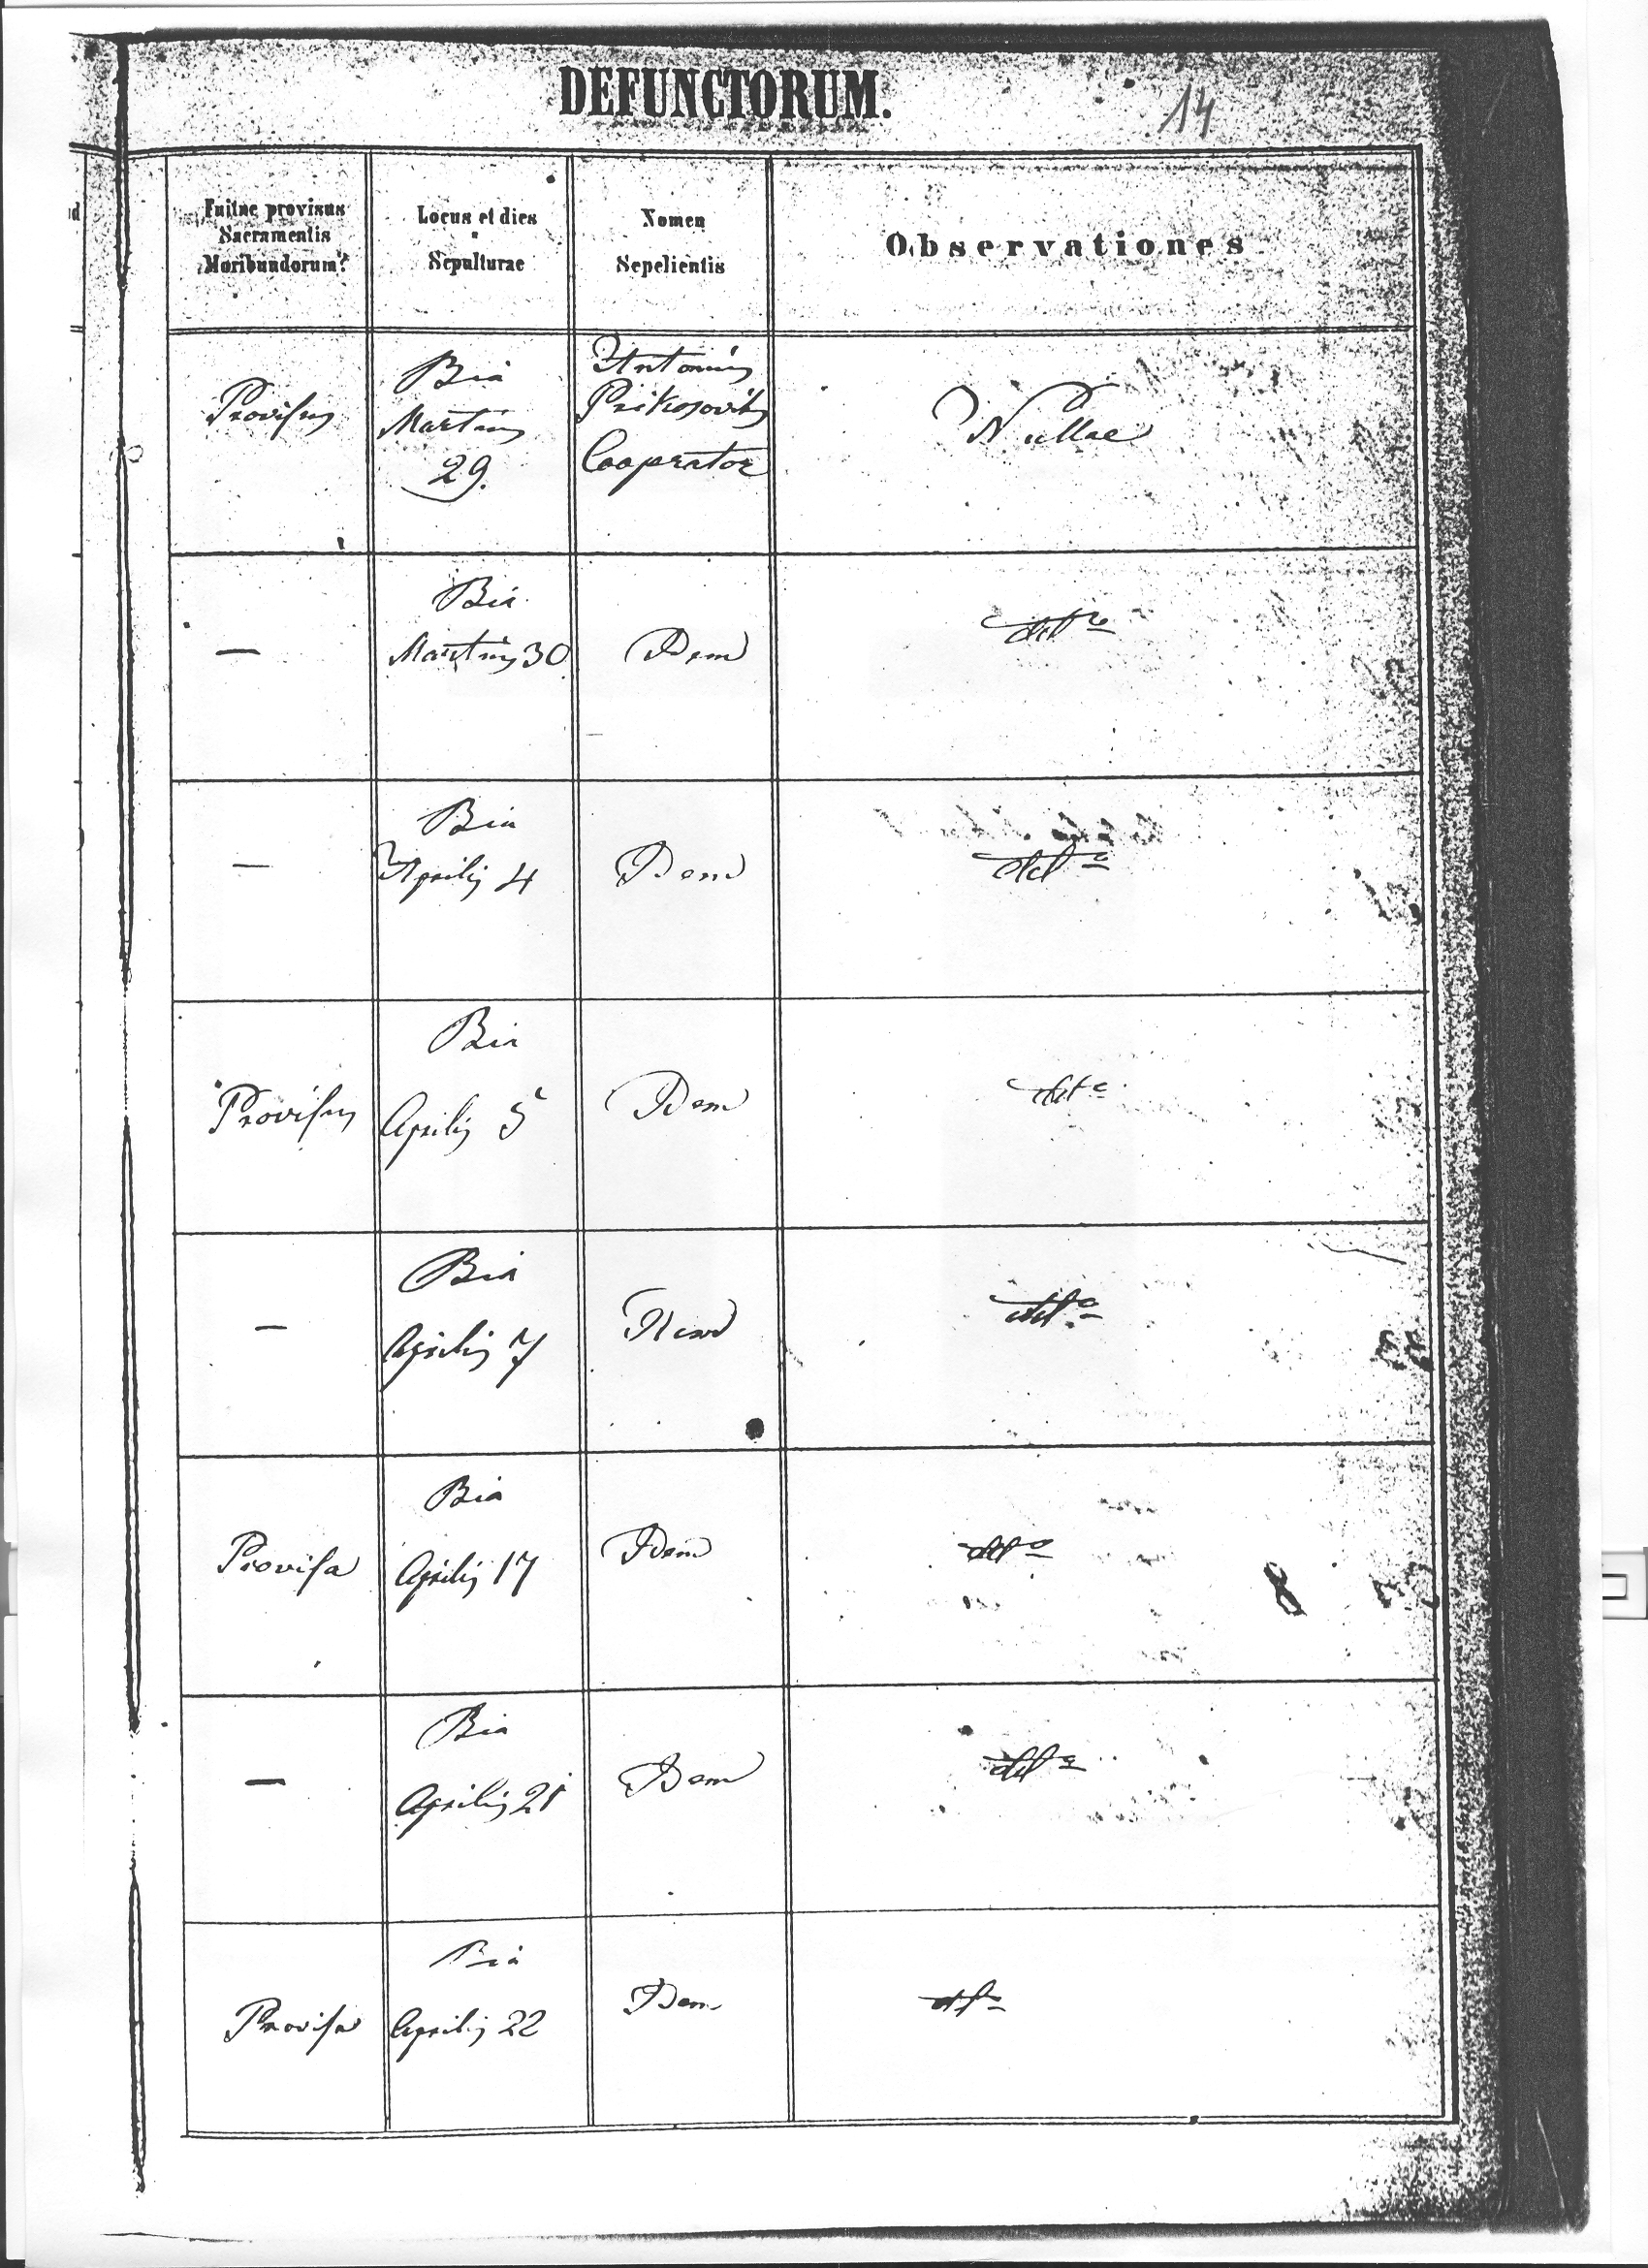 DEFUNCTORUM.
14
Fuitne provisus
Sacramentis
Moribundorum?
Locus et dies
Sepulturae
Nomen
Sepelientis
Observationes
Provisus
Bia
Martius
29.
Antonius
Prikosovits
Cooperator
Nullae
—
Bia
Martius 30
Idem
dtto
—
Bia
Aprilis 4
Idem
dtto
Provisus
Bia
Aprilis 5
Idem
dtto
—
Bia
Aprilis 7
Idem
dtto
Provisa
Bia
Aprilis 17
Idem
dtto
8
—
Bia
Aprilis 21
Idem
dtto
Provisa
Bia
Aprilis 22
Idem
dtto